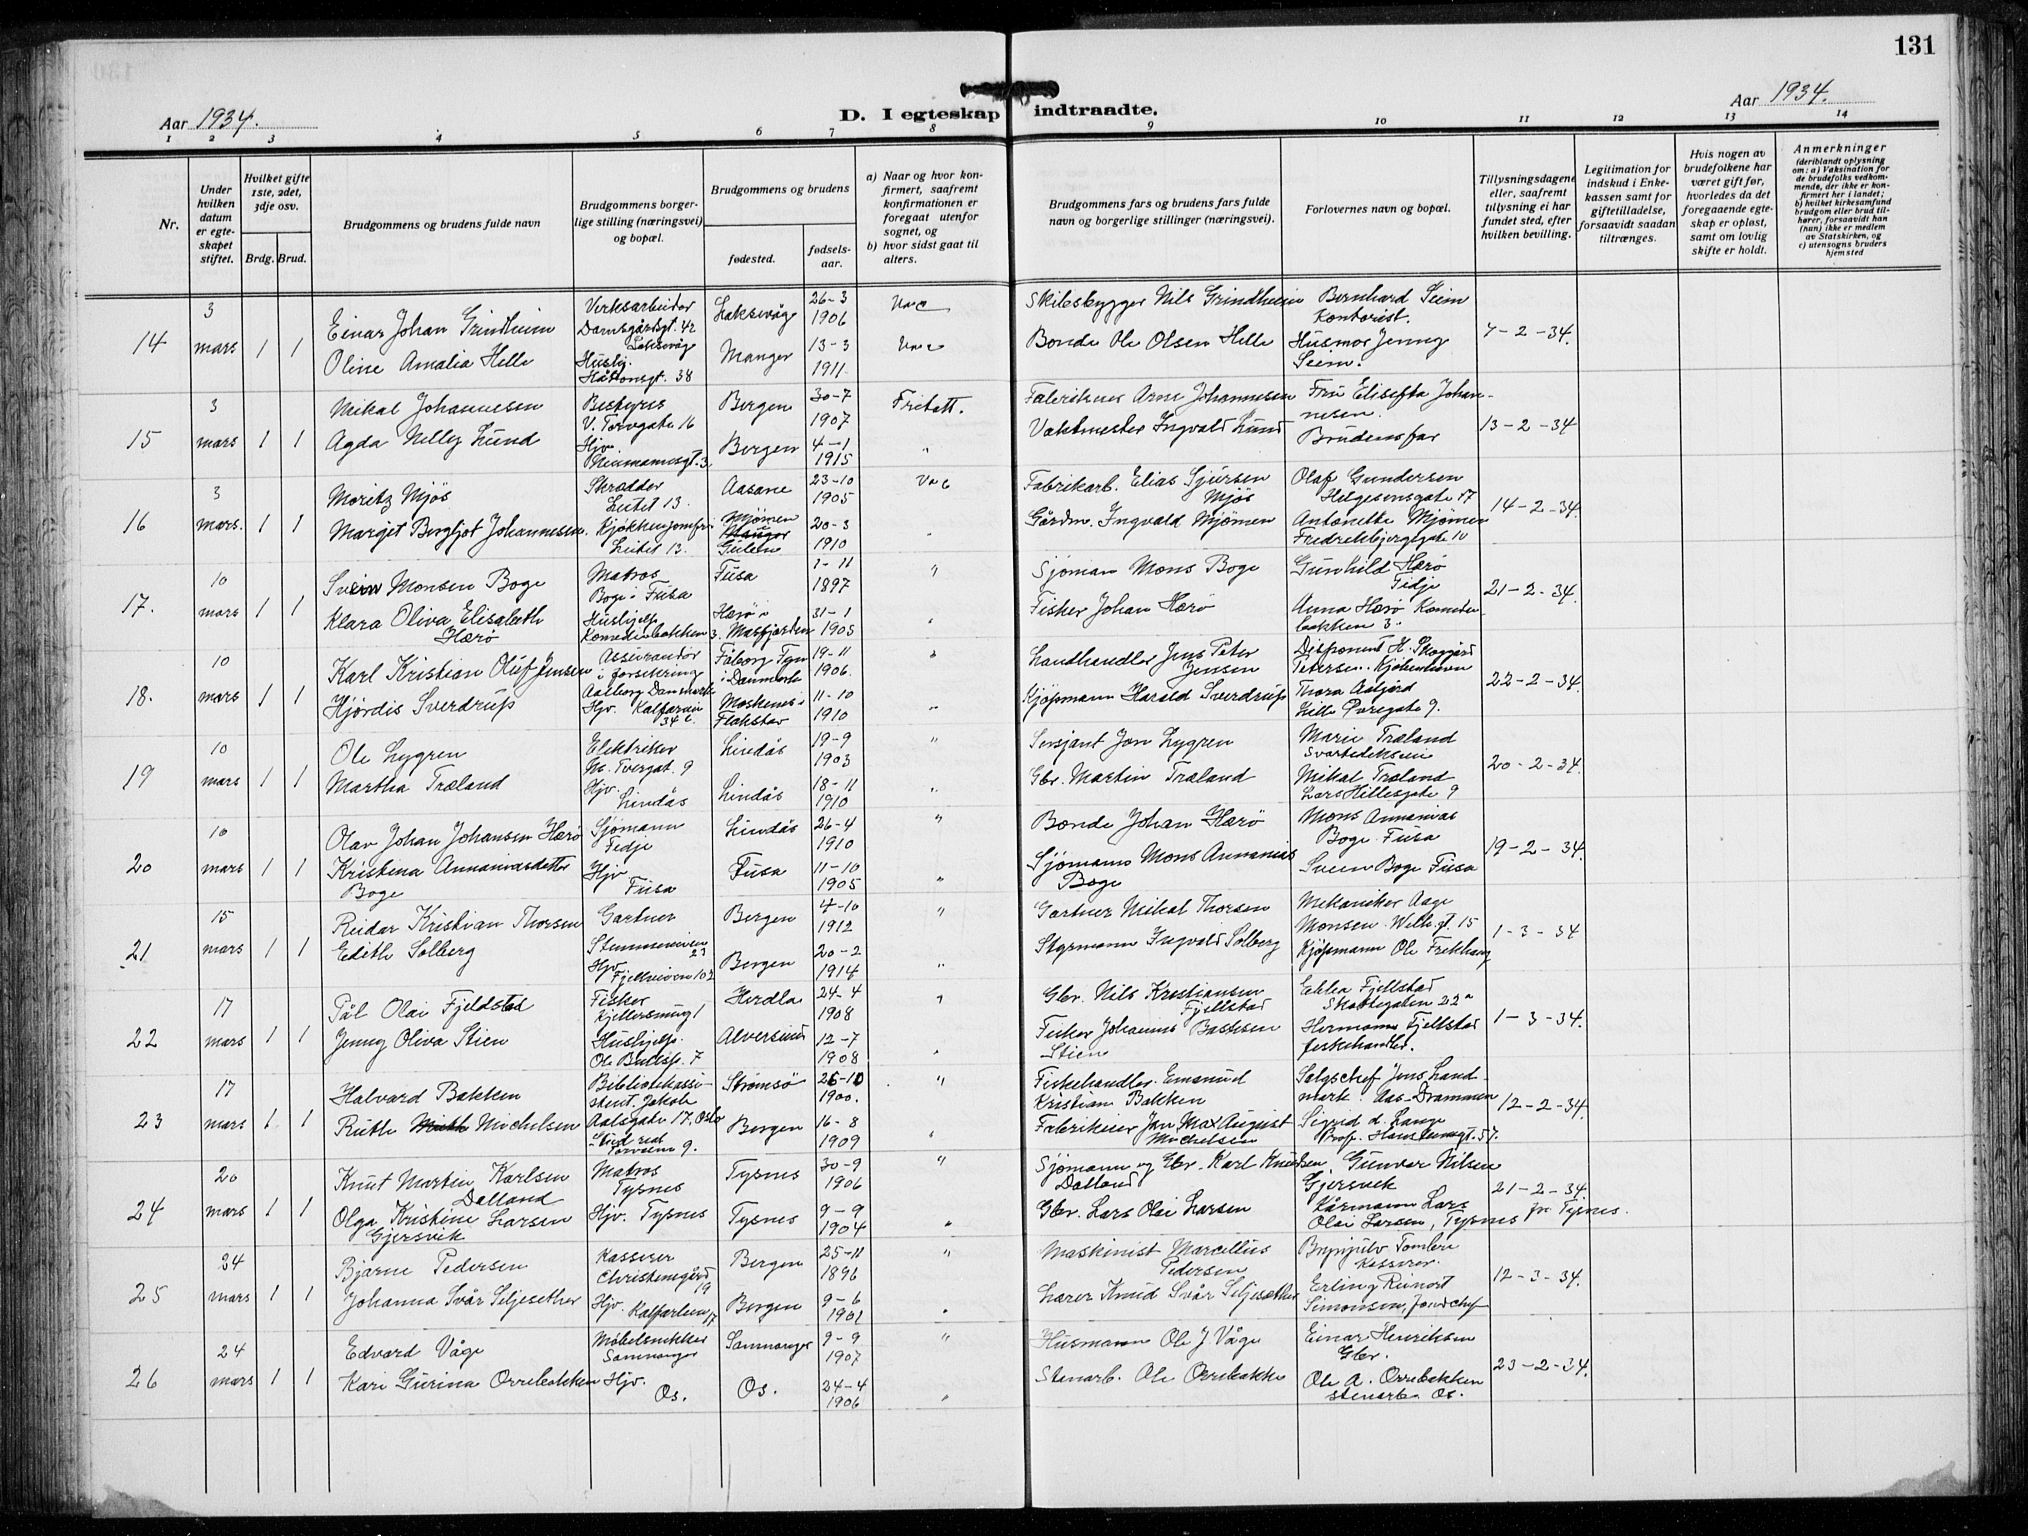 131
Aar 1934.
D. I egteskap indtraadte.
Aar 1934.
1 2 3 4 5 6 7 8 9 10 11 12 13 14
Nr.
Under hvilken datum er egteskapet stiftet.
Hvilket gifte 1ste, 2det, 3dje osv.
Brdg. Brud.
Brudgommens og brudens fulde navn
Brudgommens borgerlige stilling (næringsvei) og bopæl.
Brudgommens og brudens
fødested.
fødselsaar.
a) Naar og hvor konfirmert, saafremt konfirmationen er foregaat utenfor sognet, og
b) hvor sidst gaat til alters.
Brudgommens fars og brudens fars fulde navn og borgerlige stillinger (næringsvei).
Forlovernes navn og bopæl.
Tillysningsdagene eller, saafremt tillysning ei har fundet sted, efter hvilken bevilling.
Legitimation for indskud i Enkekassen samt for giftetilladelse, forsaavidt saadan tiltrænges.
Hvis nogen av brudefolkene har været gift før, hvorledes da det foregaaende egteskap er opløst, samt om lovlig skifte er holdt.
Anmerkninger
(deriblandt oplysning om: a) Vaksination for de brudefolks vedkommende, der ikke er konfirmert her i landet; b) hvilket kirkesamfund brudgom eller brud tilhører, forsaavidt han (hun) ikke er medlem av Statskirken, og c) utensogns bruders hjemsted
14 3 mars 1 1
Einar Johan Grindheim Verksarbeider Damsgårdsgt. 42 Laksevåg Laksevåg 26-3 1906 Skibsbygger Nils Grindheim Bernhard Seim Kontorist.
Oline Amalia Helle Håkonsgt. 38 Manger 13-3 1911. Bonde Ole Olsen Helle Husmor Jenny Seim. 7-2-34.
15 3 mars 1 1
Mikal Johannesen Bestyrer V. Torvgate 16 Bergen 30-7 1907 Fritatt. Arne Johannesen Fru Elisefta Johannesen.
Agda Nelly Lund Hjv. Neumannsgt. 3 Bergen 4-1 1915 " Vaktmester Ingvald Lund Brudens far 13-2-34
16 3 mars. 1 1
Moritz Mjøs Skredder Lutet 13. Aasane 23-10 1905 Fabrikarb. Elias Sjursen Mjøs Olaf Gundersen Helgesensgate 17
Margit Bergljot Johannesen. Kjøkkenjomfr. Lutet 13. Mjømen Gulen 20-3 1910 " Gårdm. Ingvald Mjømen Antonette Mjømen 14-2-34.
17. 10 mars 1 1
Svein Monsen Boge Matros Boge i Fusa Fusa 1-11 1897 " Sjøman Mons Boge Gunhild Hærø Fedje
Klara Oliva Elisabeth Hærø Hushjelp Komediebakken 3. Hærø i Masfjorden 31-1 1905 " Fisker Johan Hærø Anna Hærø Komediebakken 3. 21-2-34.
18. 10 mars 1 1
Karl Kristian Oluf Jensen Assurandør i forsikring Aalborg Danmark Fåborg Fyn i Danmark 19-11 1906. " Landhandler Jens Peter Jensen Disponent H. Skovgård Petersen. Kjøbenhavn
Hjørdis Sverdrup Hjv. Kalfarvn 34 c. Moskenes i Flakstav 11-10 1910 " Kjøpmann Harald Sverdrup Thora Aafjord Lille Øvregate 9. 22-2-34.
19 10 mars 1 1
Ole Lygren Elektriker M. Tvergat. 9 Lindås 19-9 1903 " Sersjant Jon Lygren Marie Træland Svartediksvei
Martha Træland Hjv. Lindås Lindås 18-11 1910 " Gbr. Martin Træland Mikal Træland Lars Hillesgate 9 20-2-34.
20 10 mars 1 1
Olav Johan Johansen Hærø Sjømann Fedje Lindås 26-4 1910 " Bonde Johan Hærø Mons Annanias Boge Fusa
Kristina Annaniasdatter Boge Hjv Fusa Fusa 11-10 1905 " Sjømann Mons Annanias Boge Svein Boge Fusa 19-2-34.
21 15 mars 1 1
Reidar Kristian Thorsen Gartner Stemmeveien 23 Bergen 4-10 1912 " Gartner Mikal Thorsen Mekaniker Aage Monsen Welh. gt. 15
Edith Solberg Hjv. Fjellveien 102 Bergen 20-2 1914 " Styrmann Ingvald Solberg Kjøpmann Ole Frekhaug 1-3-34
22 17 mars 1 1
Pål Olai Fjeldstad Fisker Kjellersmug 1 Herdla 24-4 1908 " Gbr. Nils Kristiansen Fjellstad Ebba Fjellstad Skottegaten 22a
Jenny Oliva Stien Hushjelp. Ole Bullspl. 7 Alversund 12-7 1908 " Fisker Johannes Stien Hermann Fjellstad fiskehandler. 1-3-34.
23 17 mars 1 1
Halvard Bakken Bibliotekassistent. Jakob Aalsgate 17, Oslo Strømsø 26-10 1900. " Fiskehandler. Kristian Bakken Salgschef Jens Landmark. Aas-Drammen
Ruth Michelsen Torvalm 9. Bergen 16-8 1909 " Fabrikeier Jan Max August Michelsen Sigrid d. Lange Prof. Hansteensgt. 57. 12-2-34.
24 20 mars 1 1
Knut Martin Karlsen Dalland Matros Tysnes Tysnes 30-9 1906 " Sjømann og Gbr. Karl Knudsen Dalland Gunvar Nilsen Gjersvik
Olga Kristine Larsen Gjersvik Hjv. Tysnes Tysnes 9-9 1904 " Gbr. Lars Olai Larsen Kårmann Lars Olai Larsen, Tysnes 21-2-34. fr Tysnes.
25 24 mars 1 1
Bjarne Pedersen Kasserer Christinegård 19 Bergen 25-11 1896 " Maskinist Marcellius Pedersen Brynjulv Tomlere Kasserer.
Johanna Svår Seljesæther Hjv. Kalfarlien 17 Bergen 9-6 1901 " Lærer Knud Svår Seljesæther Erling Reinert Simonsen, 12-3-34.
26 24 mars 1 1
Edvard Våge Møbelsnekker Samnanger Samnanger 9-9 1907 " Husmann Ole J Våge Einar Henriksen Gbr.
Kari Gurina Orrebakken Hjv. Os. Os. 24-4 1906 " Stenarb. Ole Orrebakke Ole A. Orrebakken stenarb. Os. 23-2-34.